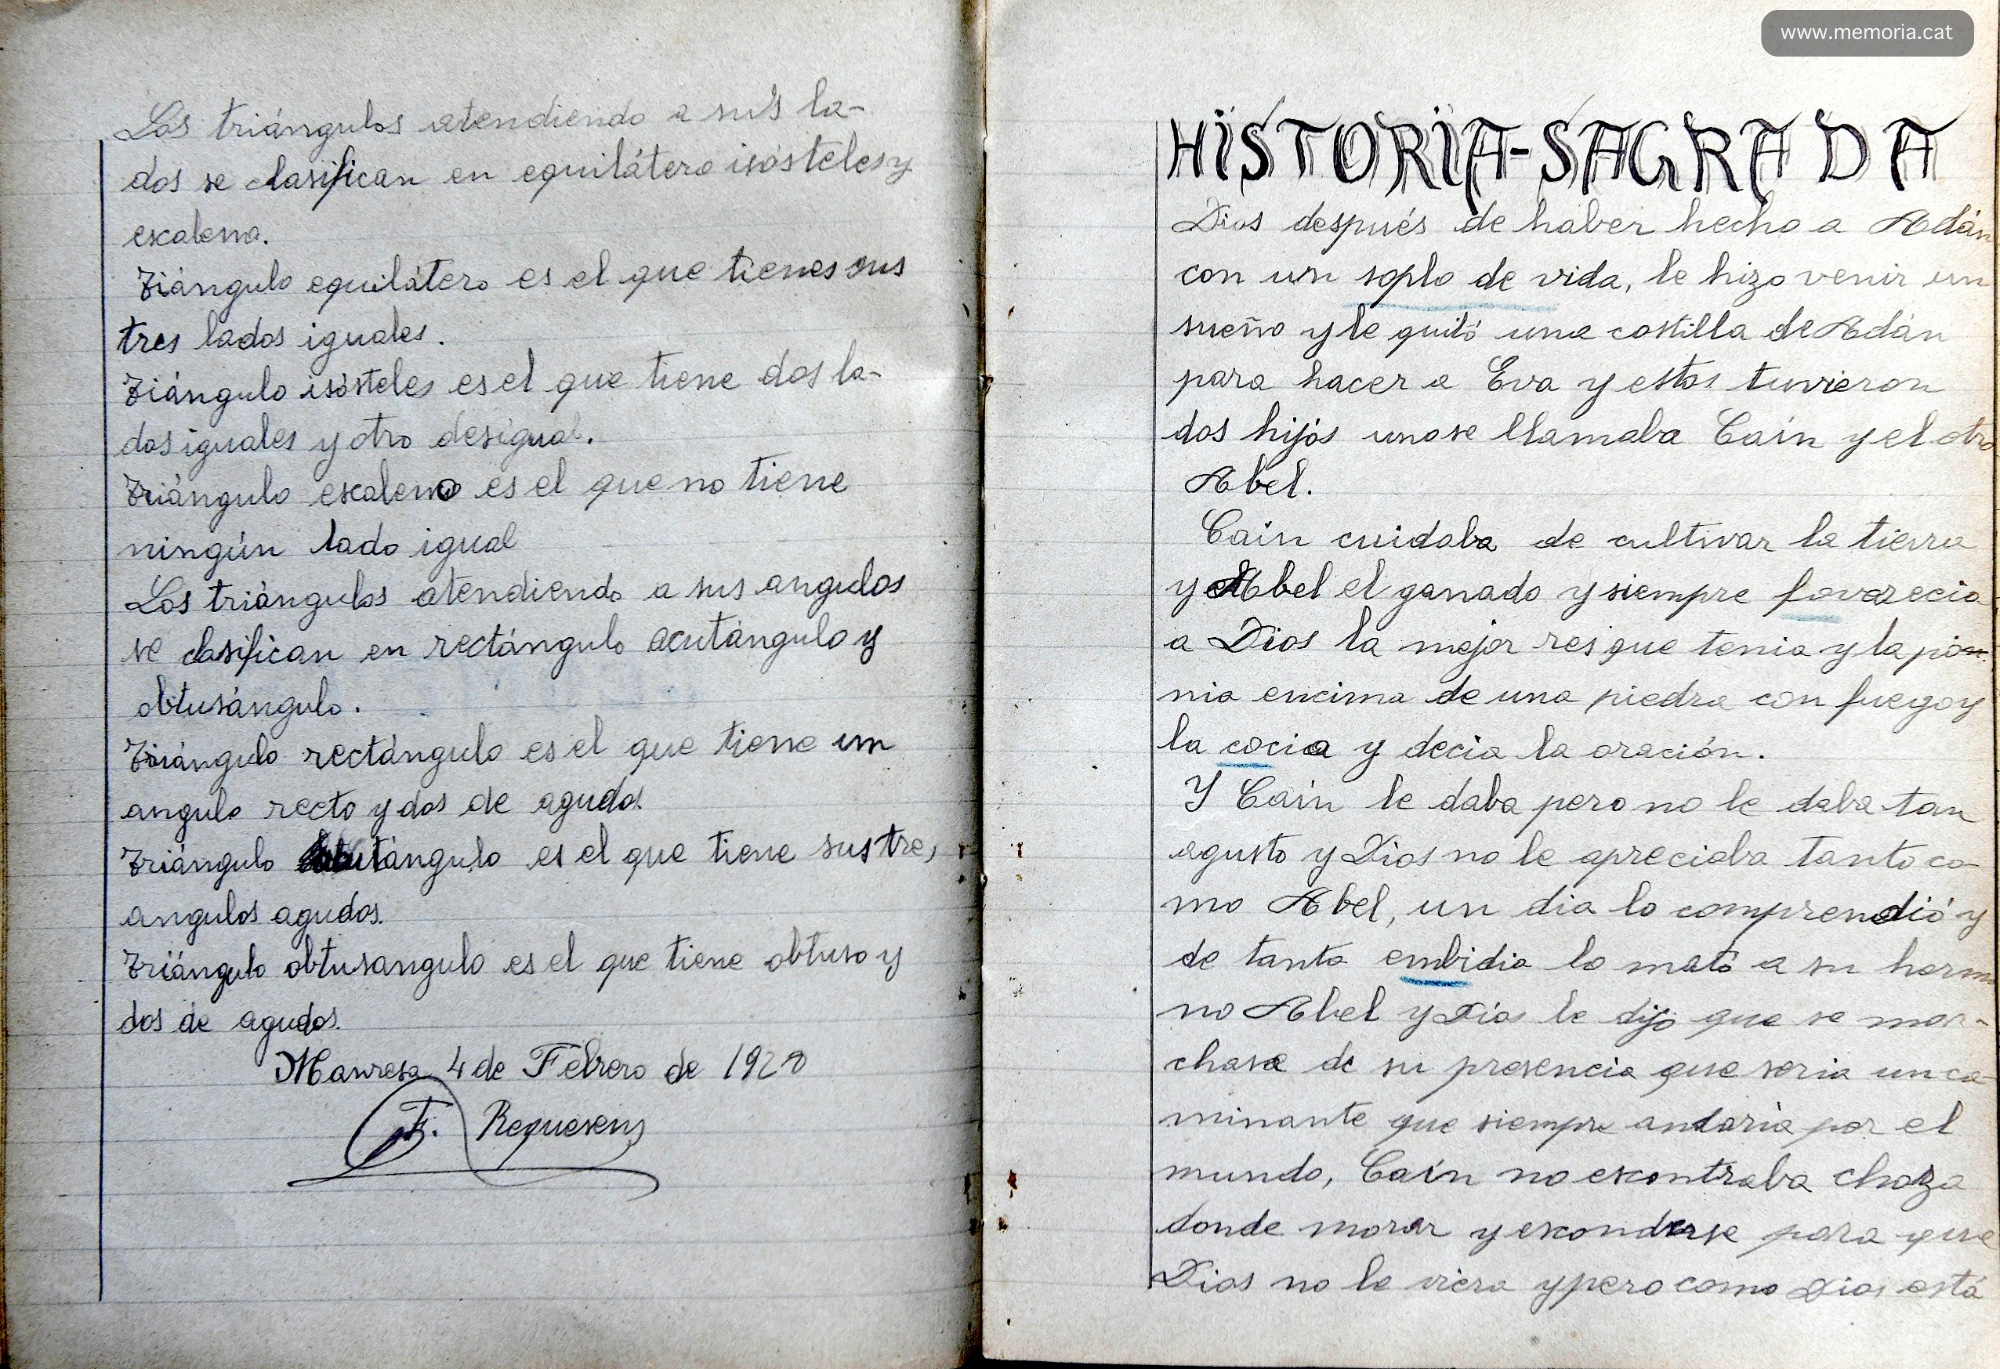 Los triángulos atendiendo a sus la-
dos se clasifican en equilátero isósteles y
escaleno.
Tiángulo equilátero es el que tienes sus
tres lados iguales.
Tiángulo isósteles es el que tiene dos la-
dos iguales y otro desigual.
Triángulo escaleno es el que no tiene
ningún lado igual
Los triángulos atendiendo a sus angulos
se clasifican en rectángulo acutángulo y
obtusángulo.
Triángulo rectángulo es el que tiene un
angulo recto y dos de agudos.
Triángulo tángulo es el que tiene sus tres
angulos agudos.
Triángulo obtusangulo es el que tiene obtuso y
dos de agudos.
Manresa 4 de Febrero de 1920
F. Requesens
www.memoria.cat
HISTORIA-SAGRADA
Dios después de haber hecho a Adán
con un soplo de vida, le hizo venir un
sueño y le quitó una costilla de Adán
para hacer a Eva y estos tuvieron
dos hijos uno se llamaba Caín y el otro
Abel.
Caín cuidaba de cultivar la tierra
y Abel el ganado y siempre favorecia
a Dios la mejor res que tenia y la po
nia encima de una piedra con fuego y
la cocia y decia la oración.
Y Caín le daba pero no le daba tan
agusto y Dios no le apreciaba tanto co-
mo Abel, un dia lo comprendió y
de tanta embidia lo mató a su herma
no Abel y Dios le dijo que se mar-
chase de su presencia que seria un ca-
minante que siempre andaria por el
mundo, Caín no escontraba choza
donde morar y esconderse para que
Dios no le viera y pero como Dios está